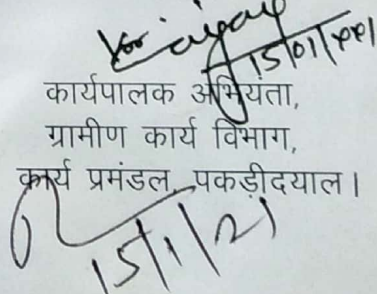 15/01/2021
कार्यपालक अभियंता,
ग्रामीण कार्य विभाग,
कार्य प्रमंडल, पकड़ीदयाल।
15/1/21